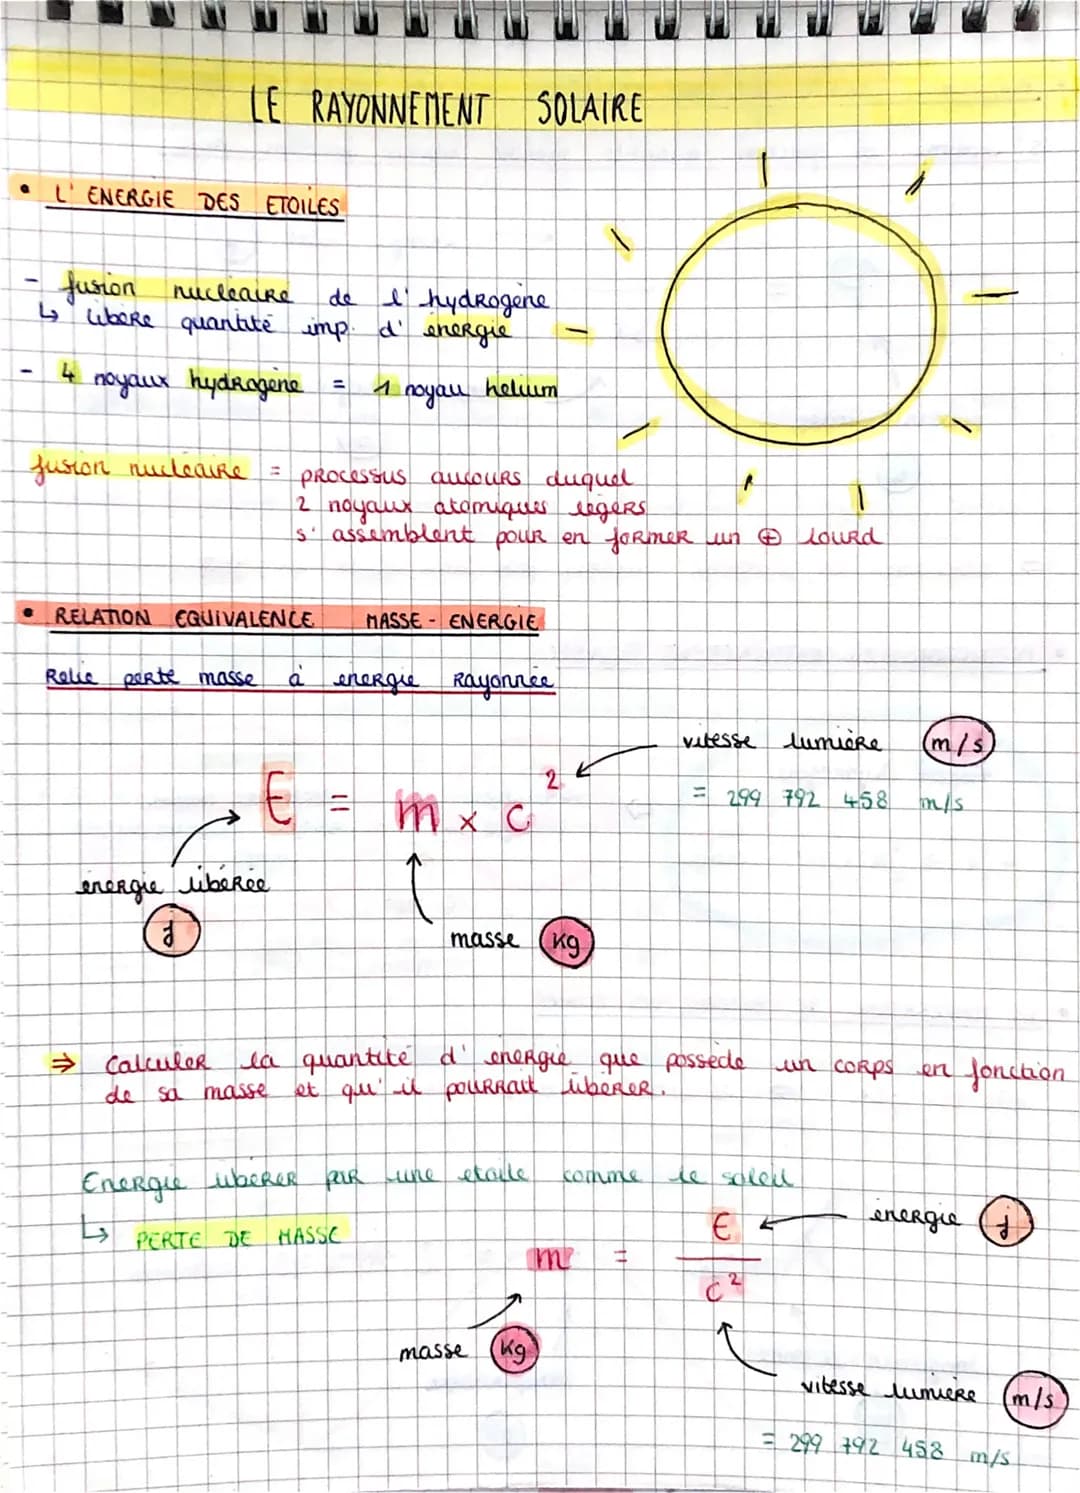 LE RAYONNEMENT SOLAIRE
• L' ENERGIE DES ETOILES
- fusion nucléaire de l' hydrogène
↳ libère quantité imp. d' énergie
- 4 noyaux hydrogène = 1 noyau helium
fusion nucléaire = processus aucours duquel
2 noyaux atomiques légers
s' assemblent pour en former un ⊕ lourd
• RELATION EQUIVALENCE MASSE - ENERGIE
Relie perte masse à énergie Rayonnée
vitesse lumière (m/s)
= 299 792 458 m/s
E = m x c²
énergie libérée
j
masse kg
⇒ Calculer la quantité d' énergie que possède un corps en fonction
de sa masse et qu' il pourrait libérer.
Energie libérer par une etoile comme le soleil
↳ PERTE DE MASSE
énergie j
m = E / c²
masse kg
vitesse lumière m/s
= 299 792 458 m/s